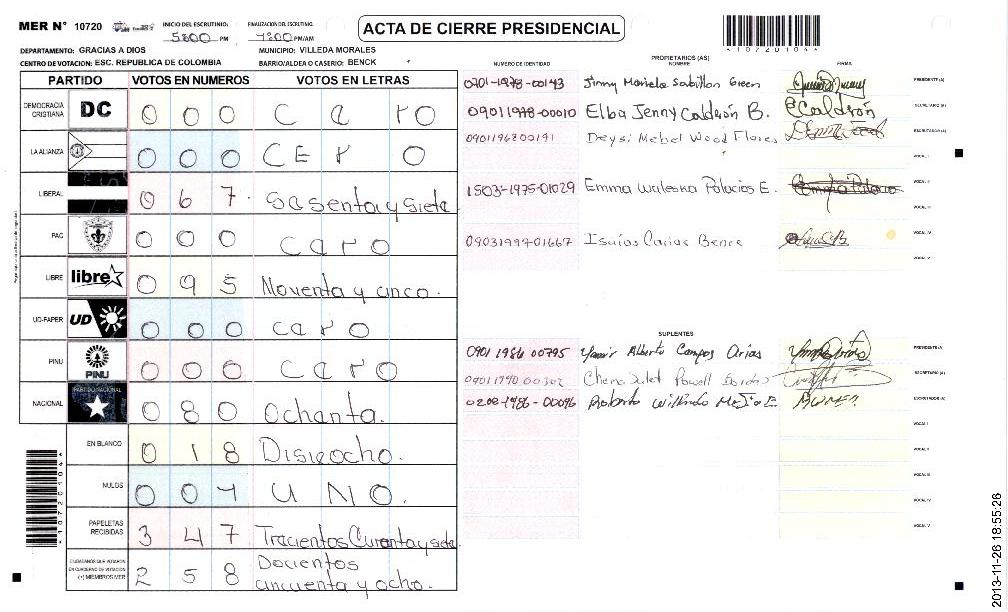 MER N° 10720 INICIO DEL ESCRUTINIO: 5:00 PM FINALIZACION DEL ESCRUTINIO. 7:00 PM/AM
ACTA DE CIERRE PRESIDENCIAL
107201044
DEPARTAMENTO: GRACIAS A DIOS MUNICIPIO: VILLEDA MORALES
CENTRO DE VOTACION: ESC. REPUBLICA DE COLOMBIA BARRIO/ALDEA O CASERIO: BENCK
PARTIDO VOTOS EN NUMEROS VOTOS EN LETRAS
DEMOCRACIA CRISTIANA DC 0 0 0 Cero
LA ALIANZA 0 0 0 CErO
LIBERAL 0 6 7. Sesenta y siete
PAC 0 0 0 cero
LIBRE libre 0 9 5 Noventa y cinco.
UD-FAPER UD 0 0 0 cero
PINU PINU 0 0 0 Cero
NACIONAL PARTIDO NACIONAL 0 8 0 Ochenta.
EN BLANCO 0 1 8 Disieocho.
NULOS 0 0 1 UNO.
PAPELETAS RECIBIDAS 3 4 7 Trecientos Curenta y siete.
CIUDADANOS QUE VOTARON EN CUADERNO DE VOTACION (+) MIEMBROS MER 2 5 8 Docientos cincuenta y ocho.
PROPIETARIOS (AS)
NUMERO DE IDENTIDAD NOMBRE FIRMA
0701-1978-00143 Jinny Mariela Sabillon Green PRESIDENTE (A)
09011978-00010 Elba Jenny Calderón B. ECalderón SECRETARIO (A)
0901196200191 Deysi Mebel Wood Flores ESCRUTADOR (A)
VOCAL I
1503-1975-01029 Emma Waleska Palacios E. VOCAL II
VOCAL III
09031997-01667 Isaías Carias Bence VOCAL IV
VOCAL V
SUPLENTES
0901 1986 00795 Yamir Alberto Campos Arias PRESIDENTE (A)
Powell SECRETARIO (A)
0208-1986-00096 Roberto Wilfredo Mejia E. ESCRUTADOR (A)
VOCAL I
VOCAL II
VOCAL III
VOCAL IV
VOCAL V
2013-11-26 18:55:26